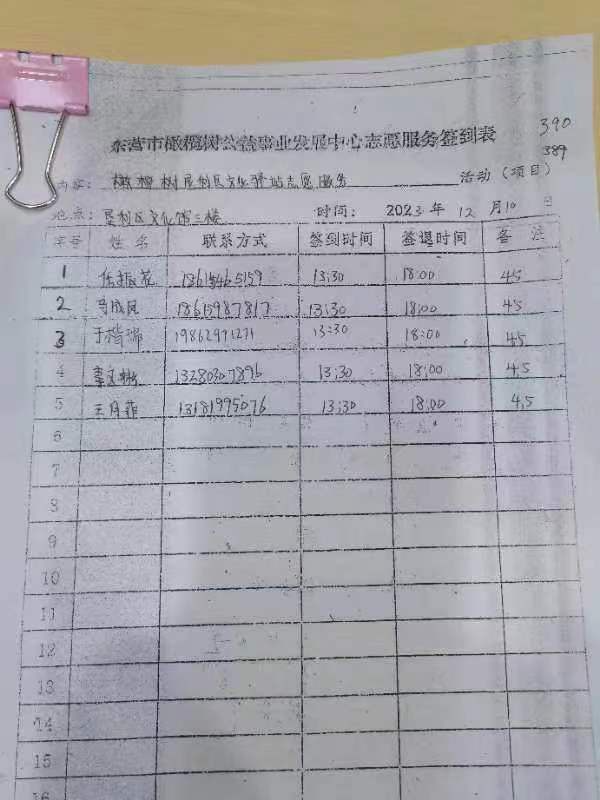 东营市橄榄树公益事业发展中心志愿服务签到表
390
389
内容：橄榄树垦利区文化驿站志愿服务 活动（项目）
地点：垦利区文化馆三楼 时间：2023年12月10日
序号 姓名 联系方式 签到时间 签退时间 备注
1 任振花 18615465159 13:30 18:00 4.5
2 马成凤 18615987817 13:30 18:00 4.5
3 于楷瑞 19862991271 13:30 18:00 4.5
4 13280307896 13:30 18:00 4.5
5 王月菲 13181995076 13:30 18:00 4.5
6
7
8
9
10
11
12
13
14
15
16